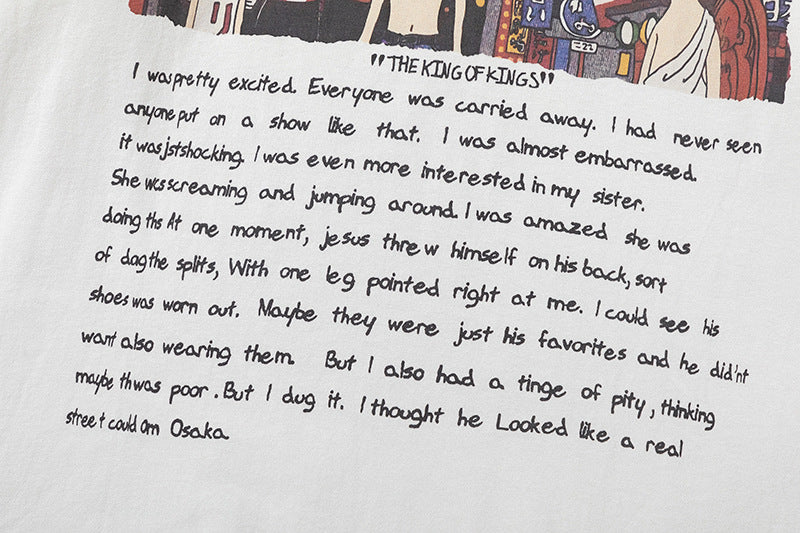 "THE KING OF KINGS"
I was pretty excited. Everyone was carried away. I had never seen
anyone put on a show like that. I was almost embarrassed.
it was jstshocking. I was even more interested in my sister.
She was screaming and jumping around. I was amazed she was
doing ths At one moment, jesus threw himself on his back, sort
of dagthe splits, With one leg pointed right at me. I could see his
shoes was worn out. Maybe they were just his favorites and he did'nt
want also wearing them. But I also had a tinge of pity, thinking
maybe th was poor. But I dug it. I thought he Looked like a real
street could om Osaka.